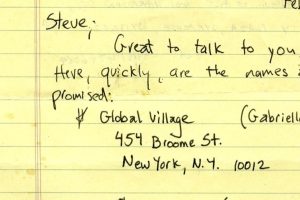 Steve;
Great to talk to you
Here, quickly, are the names
promised:
Global Village (Gabriell
454 Broome St.
New York, N.Y. 10012